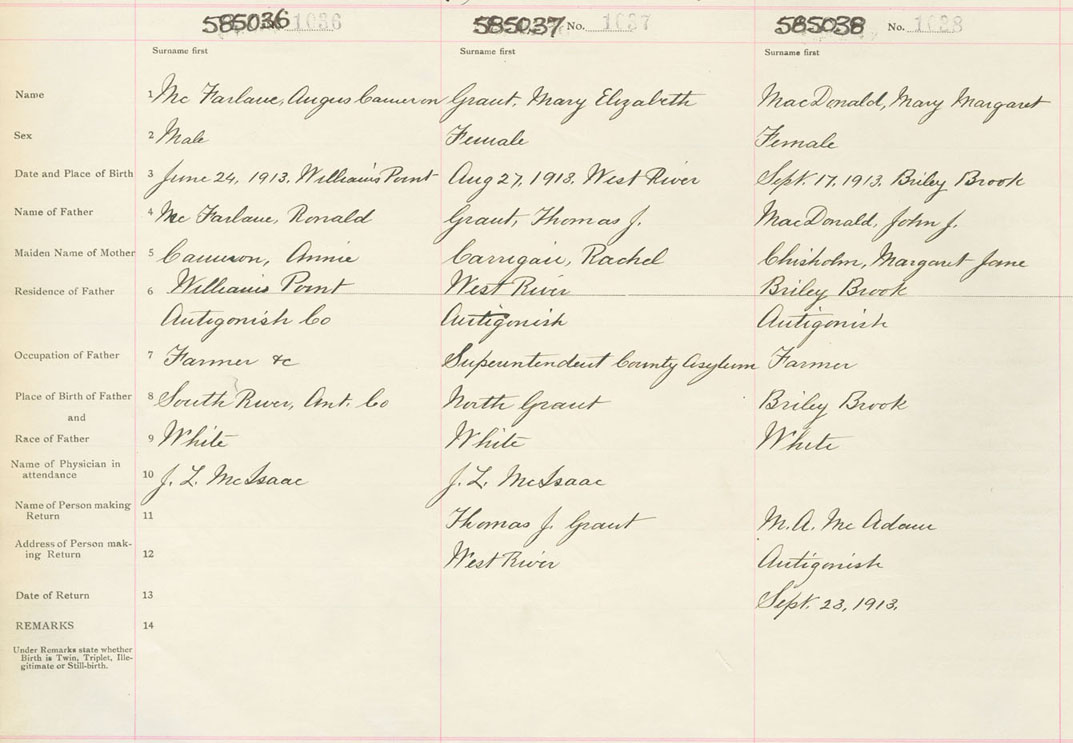 585036 No. 1036 585037 No. 1037 585038 No. 1038
Surname first Surname first Surname first
Name 1 Mc Farlane, Angus Cameron Grant, Mary Elizabeth MacDonald, Mary Margaret
Sex 2 Male Female Female
Date and Place of Birth 3 June 24, 1913. William's Point Aug 27, 1913. West River Sept. 17, 1913. Briley Brook
Name of Father 4 Mc Farlane, Ronald Grant, Thomas J. MacDonald, John J.
Maiden Name of Mother 5 Cameron, Annie Carrigan, Rachel Chisholm, Margaret Jane
Residence of Father 6 Williams Point West River Briley Brook
Antigonish Co Antigonish Antigonish
Occupation of Father 7 Farmer &c Superintendent County Asylum Farmer
Place of Birth of Father 8 South River, Ant. Co North Grant Briley Brook
and
Race of Father 9 White White White
Name of Physician in
attendance 10 J. L. McIsaac J. L. McIsaac
Name of Person making
Return 11 Thomas J. Grant M. A. Mc Adam
Address of Person mak-
ing Return 12 West River Antigonish
Date of Return 13 Sept. 23, 1913.
REMARKS 14
Under Remarks state whether
Birth is Twin, Triplet, Ille-
gitimate or Still-birth.